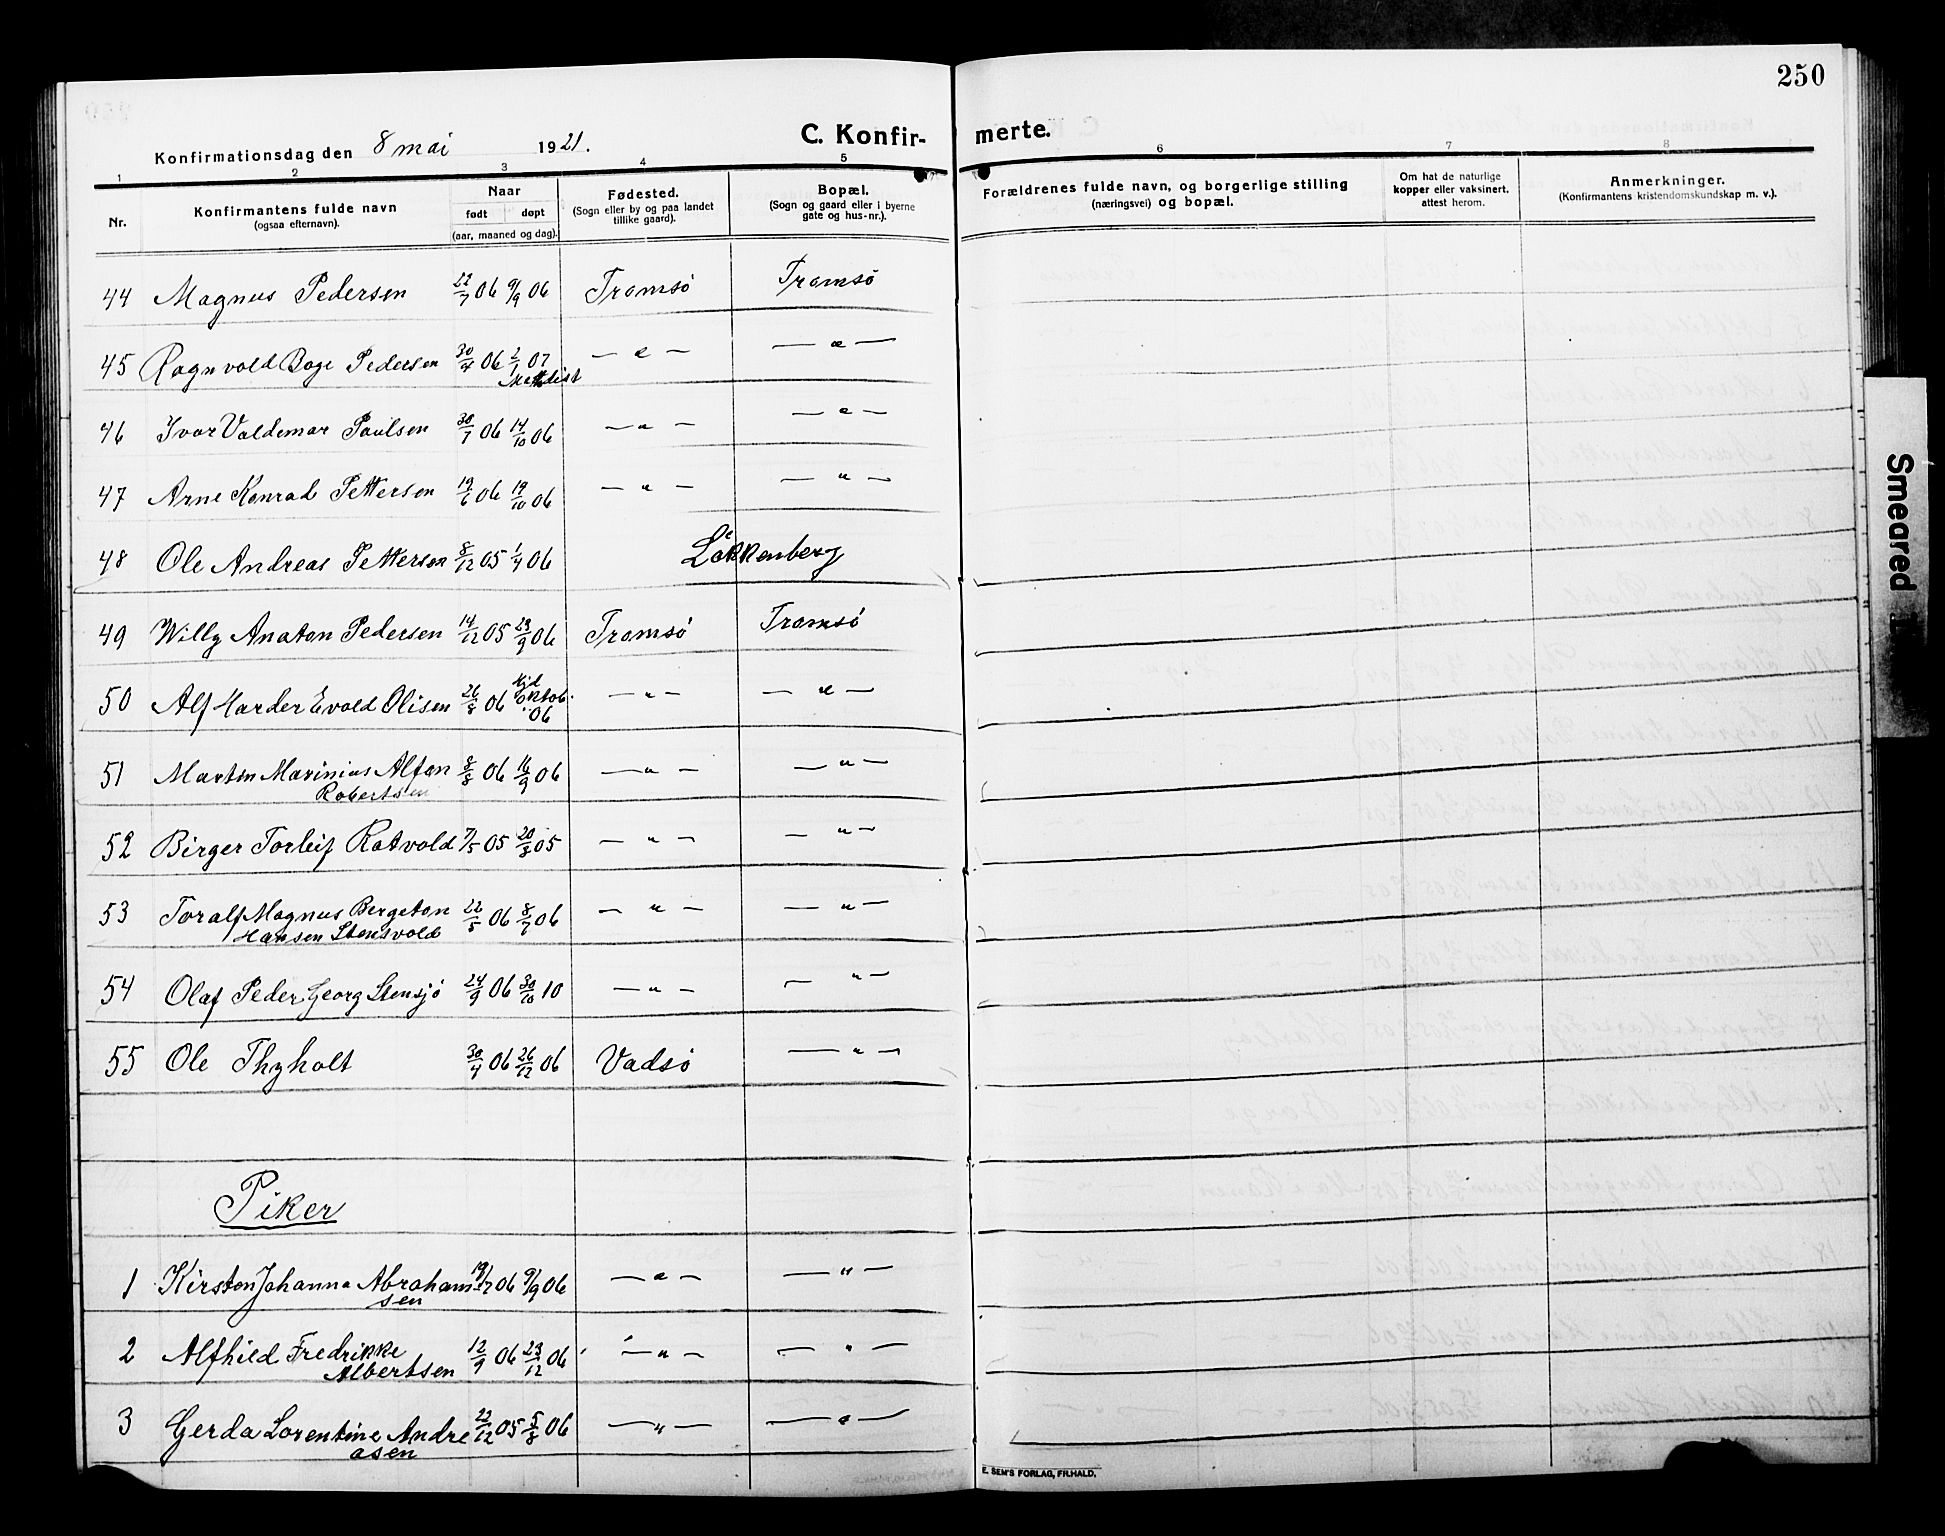 250
Konfirmationsdag den 8 mai 1921.
C. Konfirmerte.
1 2 3 4 5 6 7 8
Nr.
Konfirmantens fulde navn
(ogsaa efternavn).
Naar
født døpt
(aar, maaned og dag).
Fødested.
(Sogn eller by og paa landet
tillike gaard).
Bopæl.
(Sogn og gaard eller i byerne
gate og hus-nr.).
Forældrenes fulde navn, og borgerlige stilling
(næringsvei) og bopæl.
Om hat de naturlige
kopper eller vaksinert.
attest herom.
Anmerkninger.
(Konfirmantens kristendomskundskap m. v.).
44 Magnus Pedersen 22/7 06 9/9 06 Tromsö Tromsö
45 Ragnvold Boge Pedersen 30/4 06 2/1 07 — " — — " —
Metodist
46 Ivar Valdemar Paulsen 30/7 06 14/10 06 — " — — " —
47 Arne Konrad Pettersen 19/6 06 19/10 06 — " — — " —
48 Ole Andreas Pettersen 8/12 05 1/4 06 Lökkenberg
49 Willy Anaton Pedersen 14/12 05 23/9 06 Tromsö Tromsö
50 Alf Harder Evald Olisen 26/8 06 Oktob. 06 — " — — " —
51 Martin Marinius Alfon 8/8 06 16/9 06 — " — — " —
Robertsen
52 Birger Torleif Ratvold 7/5 05 20/8 05 — " — — " —
53 Toralf Magnus Bergeton 22/5 06 8/7 06 — " — — " —
Hansen Stensvold
54 Olaf Peder Georg Stensjö 24/9 06 30/10 10 — " — — " —
55 Ole Thyholt 30/4 06 26/12 06 Vadsö — " —
Piker
1 Kirsten Johanna Abraham- 19/7 06 9/9 06 — " — — " —
sen
2 Alfhild Fredrikke 12/9 06 23/12 06 — " — — " —
Albertsen
3 Gerda Lorentine Andre 22/12 05 5/8 06 — " — — " —
asen
E. SEM'S FORLAG, FR.HALD.
Smeared